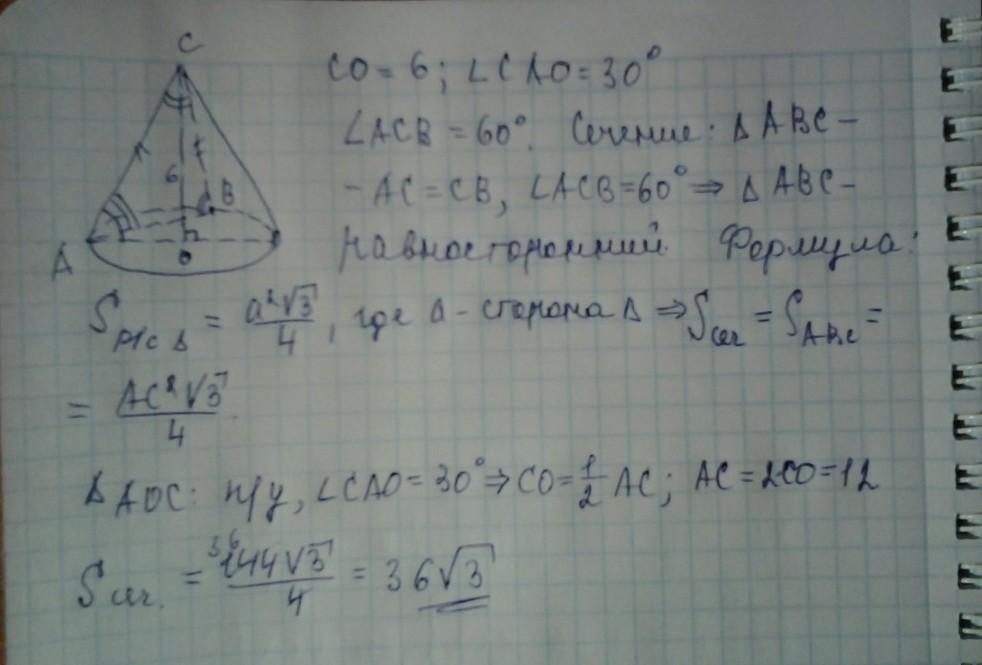 C
CO = 6; ∠CAO = 30°
∠ACB = 60°. Сечение: Δ ABC –
6
B
– AC = CB, ∠ACB = 60° ⇒ Δ ABC –
A
O
равносторонний. Формула:
S р/с Δ = a²√3/4, где a - сторона Δ ⇒ Sсеч = S ABC =
= AC²√3/4.
Δ AOC: п/у, ∠CAO = 30° ⇒ CO = 1/2 AC; AC = 2CO = 12
Sсеч. = 36 144√3/4 = 36√3